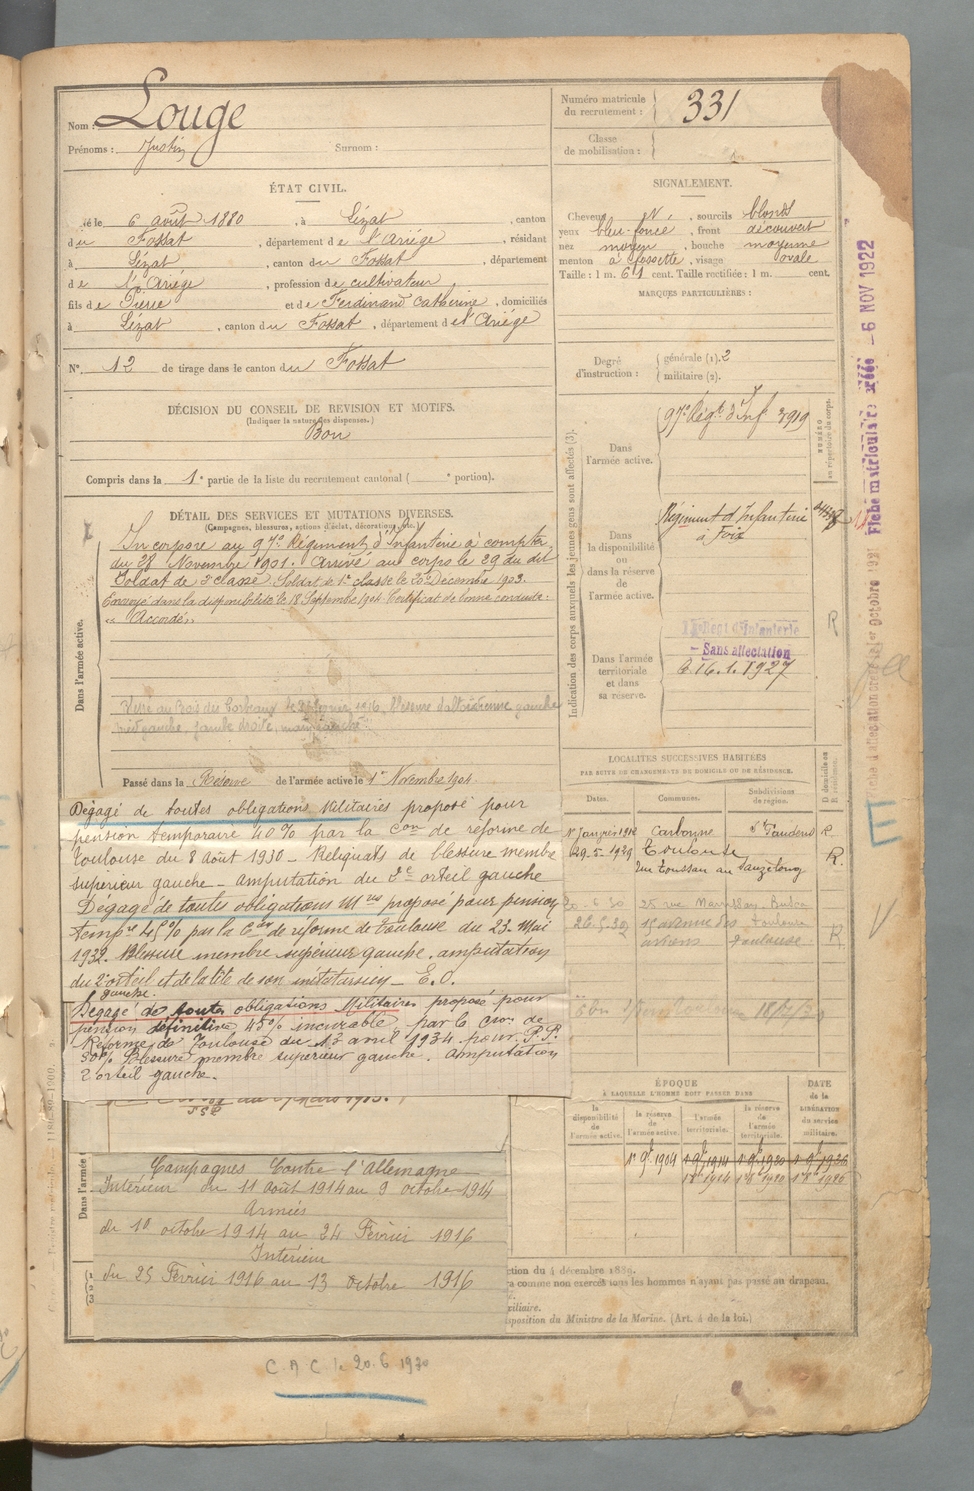 Nom : Louge
Prénoms : Justin Surnom :
Numéro matricule du recrutement : 331
Classe de mobilisation :
ÉTAT CIVIL.
né le 6 août 1880, à Lézat, canton
du Fossat, département de l'Ariége, résidant
à Lézat, canton du Fossat, département
de l'Ariége, profession de cultivateur,
fils de Pierre et de Ferdinand Catherine, domiciliés
à Lézat, canton du Fossat, département de l'Ariége
N° 12 de tirage dans le canton du Fossat
SIGNALEMENT.
Cheveux N, sourcils blonds
yeux bleu foncé, front découvert
nez moyen, bouche moyenne
menton à fossette, visage ovale
Taille : 1 m. 61 cent. Taille rectifiée : 1 m. cent.
MARQUES PARTICULIÈRES :
Degré d'instruction : générale (1). 2
militaire (2).
DÉCISION DU CONSEIL DE REVISION ET MOTIFS.
(Indiquer la nature des dispenses.)
Bon
Compris dans la 1e partie de la liste du recrutement cantonal ( e portion).
DÉTAIL DES SERVICES ET MUTATIONS DIVERSES.
(Campagnes, blessures, actions d'éclat, décorations, etc.)
Dans l'armée active.
Incorporé au 97e Régiment d'Infanterie à compter
du 28 Novembre 1901. Arrivé au corps le 29 du dit
Soldat de 2e classe. Soldat de 1e classe le Décembre 1903.
Envoyé dans la disponibilité le 18 Septembre 1904 Certificat de bonne conduite :
"Accordé"
Blessé au Bois des Corbeaux
gauche, jambe droite, main gauche
Passé dans la Réserve de l'armée active le 1er Novembre 1904.
Dégagé de toutes obligations Militaires proposé pour
pension temporaire 40% par la Con de réforme de
Toulouse du 8 Août 1930 – Reliquats de blessure membre
supérieur gauche – amputation du 2e orteil gauche
Dégagé de toutes obligations Mres proposé pour pension
tempre 45% par la Con de réforme de Toulouse du 23 Mai
1932. Blessure membre supérieur gauche. amputation
du 2e orteil et de la tête de son métatarsien – E.O.
gauche.
Dégagé de toutes obligations Militaires proposé pour
pension définitive 45% incurable, par la Con de
Réforme de Toulouse du 13 avril 1934 pour P.P.
30% Blessure membre supérieur gauche. Amputation
2e orteil gauche.
Dans l'armée
Campagnes Contre l'Allemagne
Intérieur du 11 août 1914 au 9 octobre 1914
Armées
du 10 octobre 1914 au 24 Février 1916
Intérieur
du 25 Février 1916 au 13 octobre 1916
C.A.C le 20.6.1930
Indication des corps auxquels les jeunes gens sont affectés (3).
NUMÉRO au répertoire du corps.
Dans l'armée active.
97e Régt d'Inf 3919
Dans la disponibilité ou dans la réserve de l'armée active.
Régiment d'Infanterie
à Foix
Dans l'armée territoriale et dans sa réserve.
Régt d'Infanterie
– Sans affectation
16.1.1927
R
LOCALITÉS SUCCESSIVES HABITÉES
PAR SUITE DE CHANGEMENTS DE DOMICILE OU DE RÉSIDENCE.
Dates. Communes. Subdivisions de région. D domicile ou R résidence.
Janvier 1912 Carbonne St Gaudens R.
29-5-1929 Toulouse R.
20-6-30 25 rue
26.5.32 avenue des Toulouse
Toulouse R
ÉPOQUE
À LAQUELLE L'HOMME DOIT PASSER DANS
la disponibilité de l'armée active. la réserve de l'armée active. l'armée territoriale. la réserve de l'armée territoriale. DATE de la LIBÉRATION du service militaire.
1er 9bre 1904 1er 9bre 1914 1er 9bre 1920 1er 9bre 1926
ction du 4 décembre 1889.
ra comme non exercés tous les hommes n'ayant pas passé au drapeau.
xiliaire.
sposition du Ministre de la Marine. (Art. 4 de la loi.)
Fiche d'affectation créée le 1er Octobre 1921
Fiche matriculaire créée – 6 NOV 1922